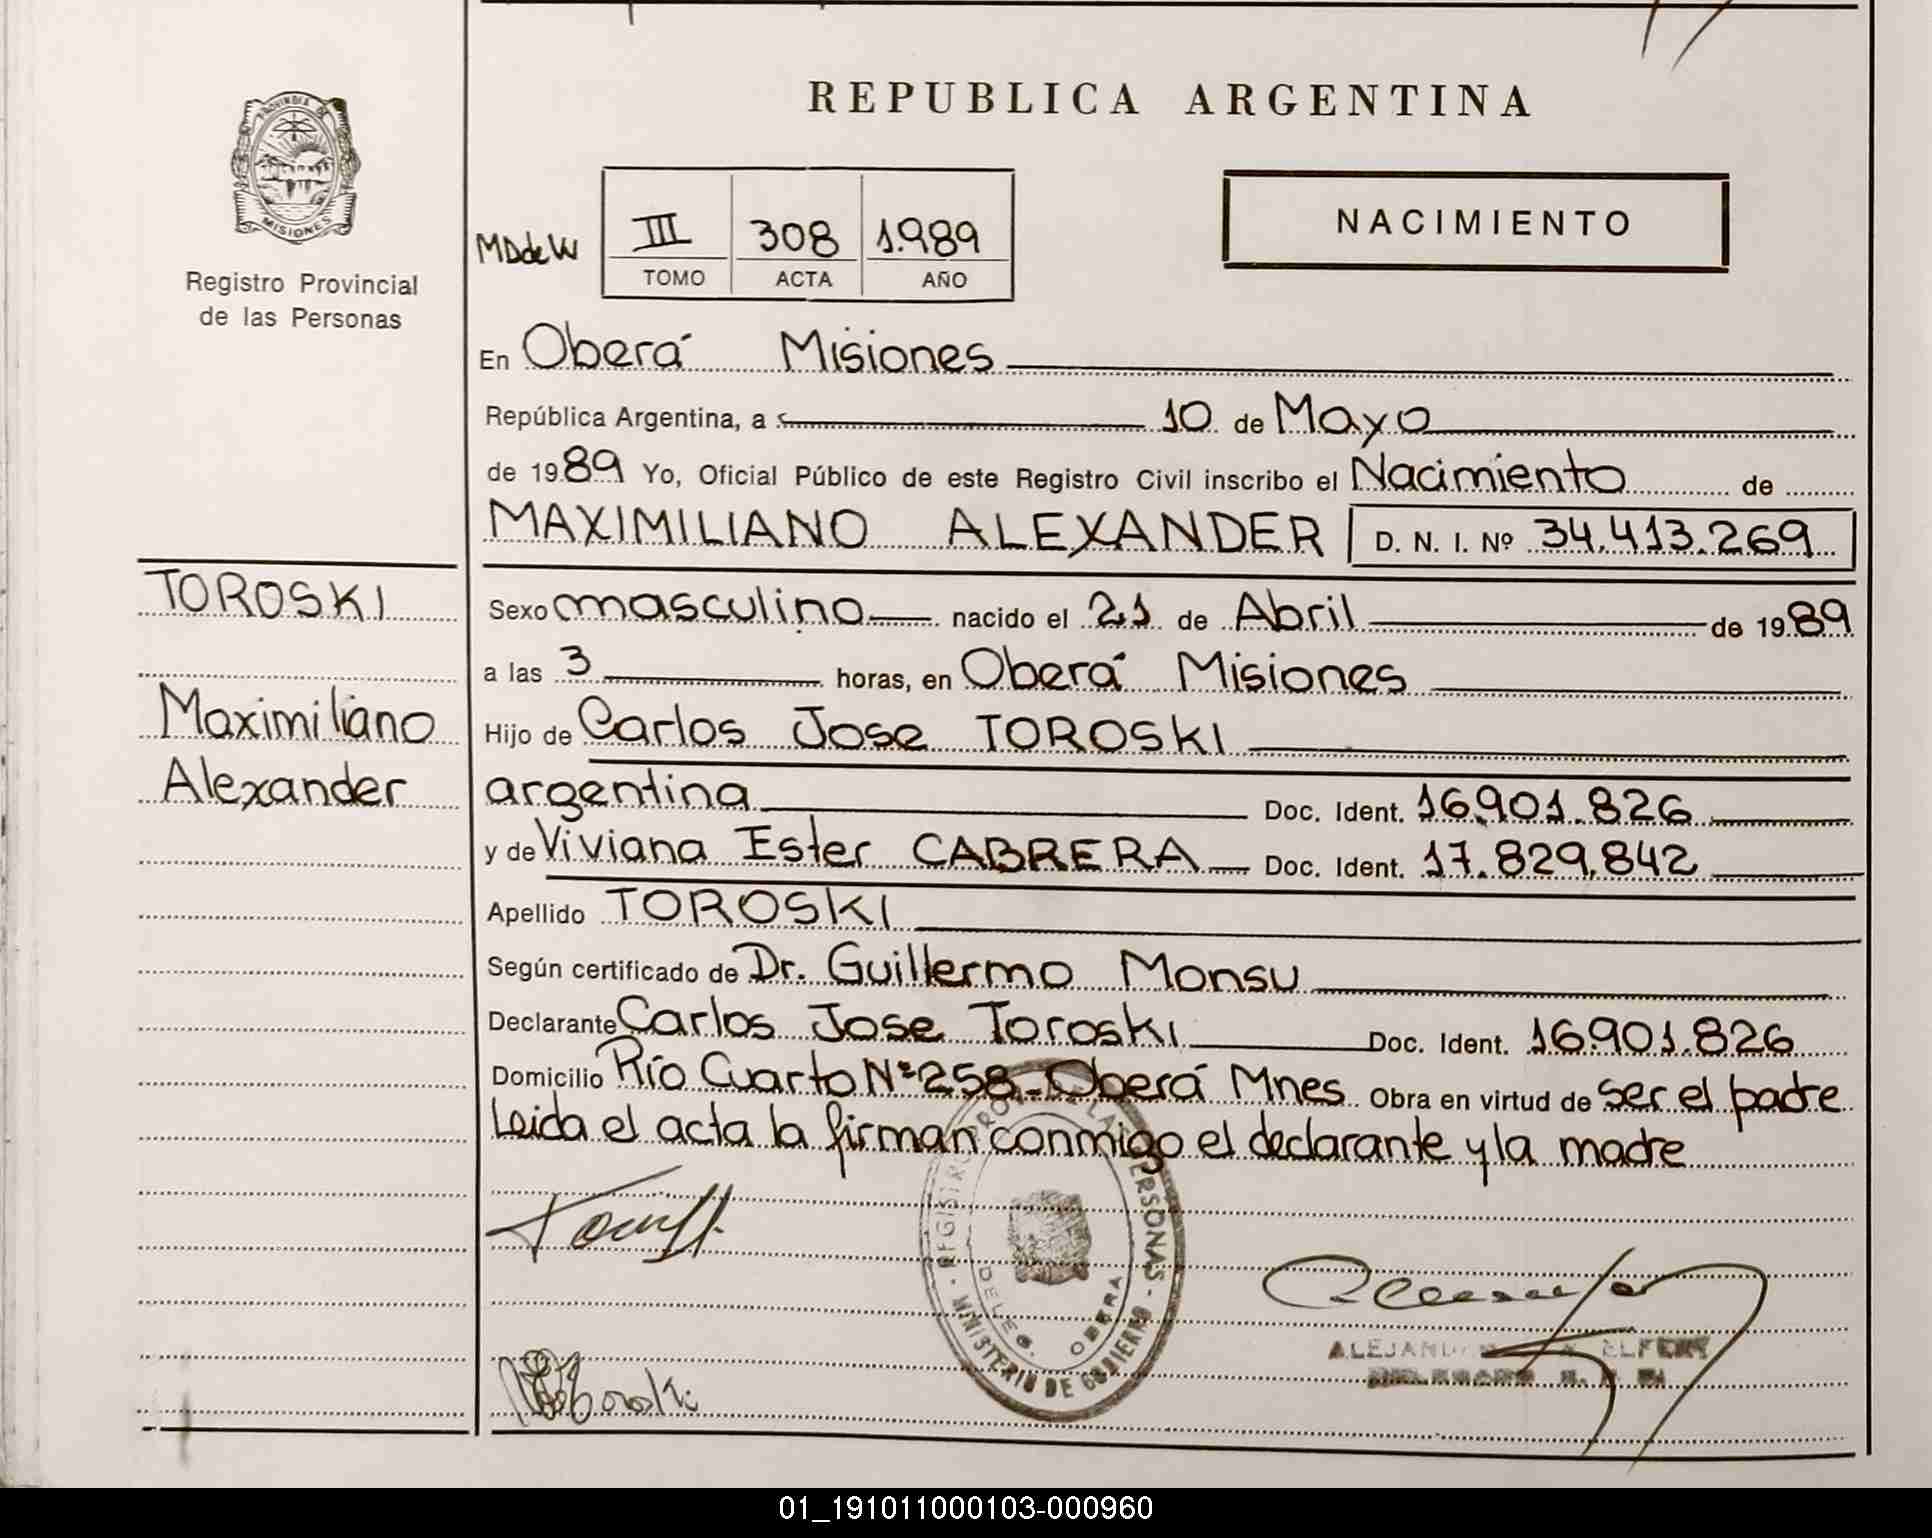 REPUBLICA ARGENTINA
PROVINCIA DE
MISIONES
Registro Provincial
de las Personas
MDdeW
III 308 1.989
TOMO ACTA AÑO
NACIMIENTO
En Oberá Misiones
República Argentina, a 10 de Mayo
de 1989 Yo, Oficial Público de este Registro Civil inscribo el Nacimiento de
MAXIMILIANO ALEXANDER D. N. I. Nº 34.413.269
TOROSKI
Maximiliano
Alexander
Sexo masculino nacido el 21 de Abril de 1989
a las 3 horas, en Oberá Misiones
Hijo de Carlos Jose TOROSKI
argentina Doc. Ident. 16.901.826
y de Viviana Ester CABRERA Doc. Ident. 17.829.842
Apellido TOROSKI
Según certificado de Dr. Guillermo Monsu
Declarante Carlos Jose Toroski Doc. Ident. 16.901.826
Domicilio Río Cuarto Nº 258 - Oberá Mnes Obra en virtud de ser el padre
Leida el acta la firman conmigo el declarante y la madre
REGISTRO PROV. LAS PERSONAS
MINISTERIO DE GOBIERNO
DELEG. OBERA
01_191011000103-000960